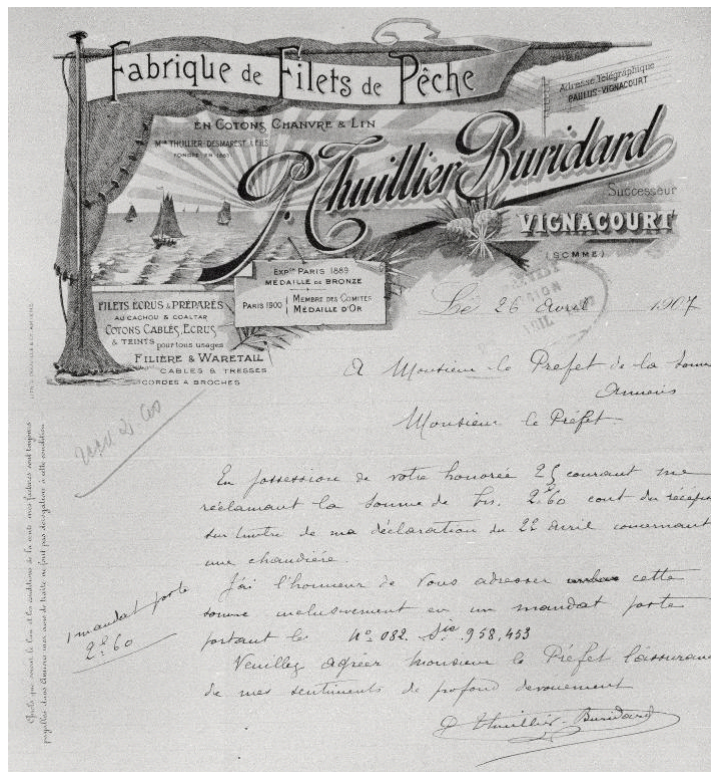 Fabrique de Filets de Pêche
EN COTONS, CHANVRE & LIN
Mon THUILLIER-DESMAREST & FILS
Adresse Télégraphique
PAULUS-VIGNACOURT
P. Thuillier Buridard
Successeur
VIGNACOURT
(SOMME)
EXPon PARIS 1889
MÉDAILLE DE BRONZE
PARIS 1900 MEMBRE DES COMITÉS
MÉDAILLE D'OR
FILETS ECRUS & PRÉPARÉS
AU CACHOU & COALTAR
COTONS CABLÉS, ECRUS
& TEINTS pour tous usages
FILIÈRE & WARETAIL
CABLES & TRESSES
CORDES A BROCHES
Le 26 avril 1907
A Monsieur le Prefet de la Somme
Amiens
Monsieur le Préfet
En possession de votre honorée 25 courant me
réclamant la somme de frs. 2.60 cout du récépissé
sur timbre de ma déclaration du 22 avril concernant
une chaudière.
J'ai l'honneur de Vous adresser cette
somme inclusivement en un mandat poste
portant le No 082. Sie 958,453
Veuillez agréer Monsieur le Préfet l'assurance
de mes sentiments de profond dévouement
P. Thuillier-Buridard
1 mandat poste
2.60